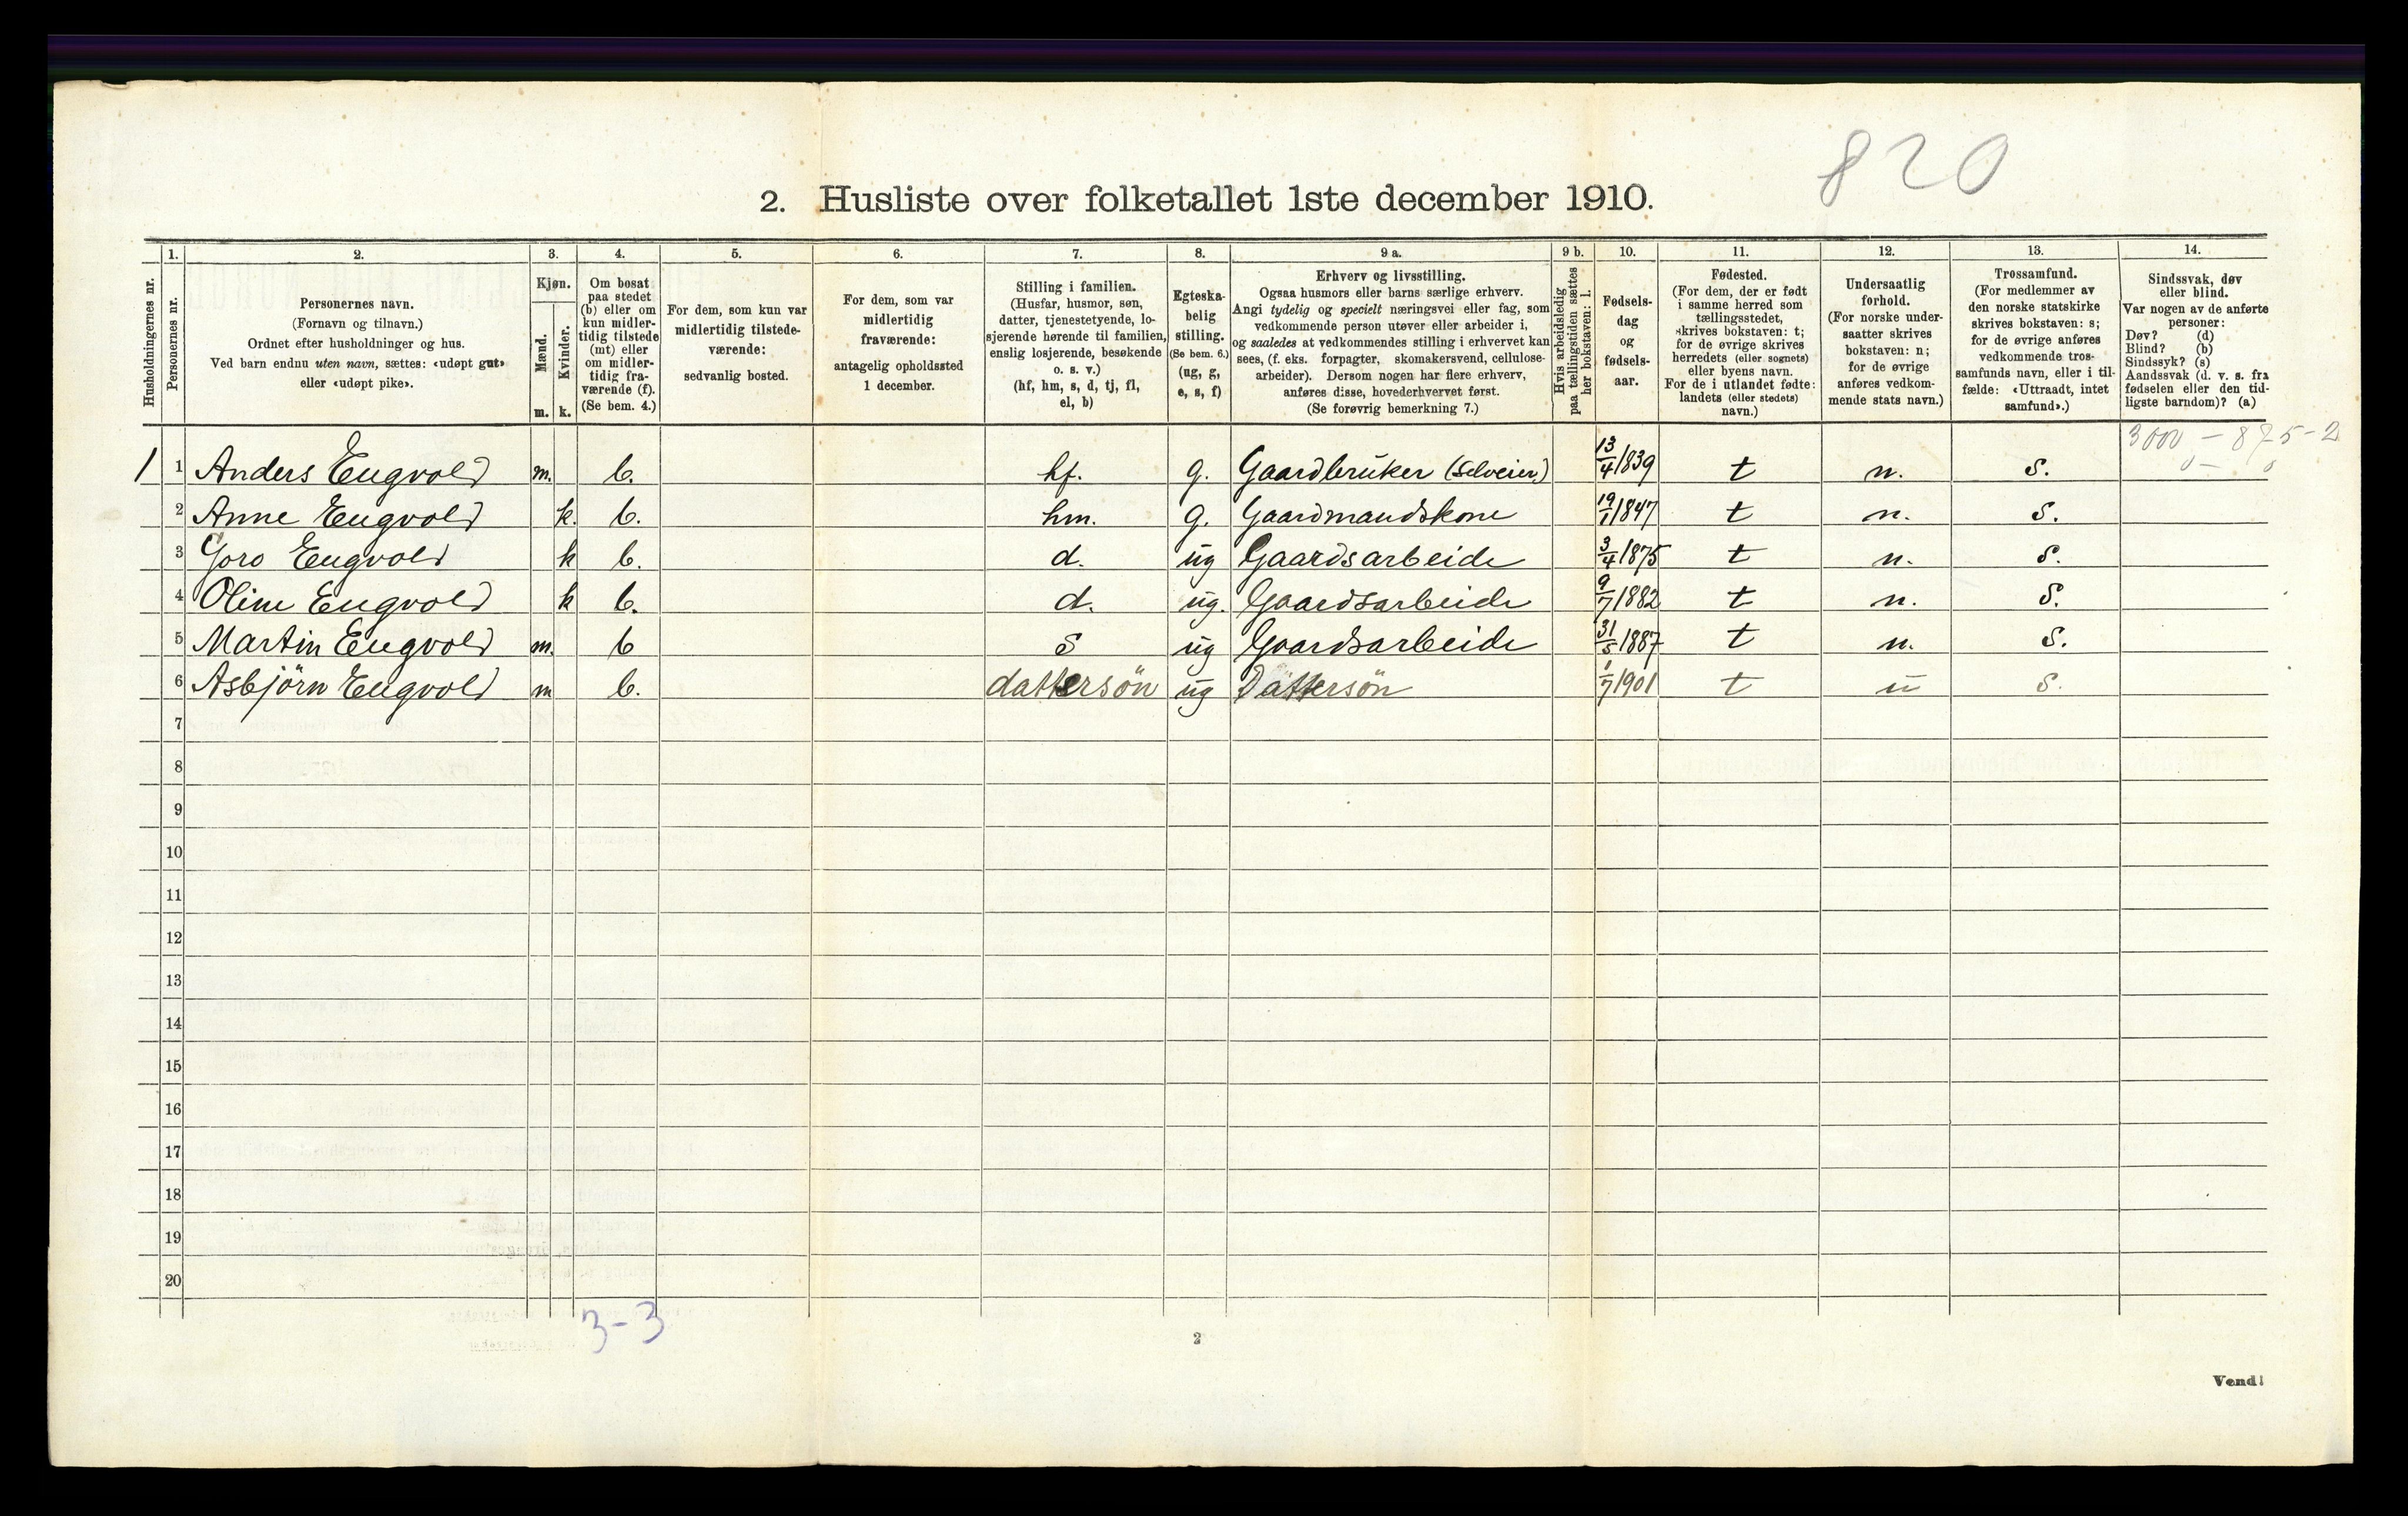 820
2. Husliste over folketallet 1ste december 1910.
Husholdningernes nr.
1. Personernes nr.
2. Personernes navn.
(Fornavn og tilnavn.)
Ordnet efter husholdninger og hus.
Ved barn endnu uten navn, sættes: «udøpt gut»
eller «udøpt pike».
3. Kjøn.
Mænd. m.
Kvinder. k.
4. Om bosat
paa stedet
(b) eller om
kun midler-
tidig tilstede
(mt) eller
om midler-
tidig fra-
værende (f).
(Se bem. 4.)
5. For dem, som kun var
midlertidig tilstede-
værende:
sedvanlig bosted.
6. For dem, som var
midlertidig
fraværende:
antagelig opholdssted
1 december.
7. Stilling i familien.
(Husfar, husmor, søn,
datter, tjenestetyende, lo-
sjerende hørende til familien,
enslig losjerende, besøkende
o. s. v.)
(hf, hm, s, d, tj, fl,
el, b)
8. Egteska-
belig
stilling.
(Se bem. 6.)
(ug, g,
e, s, f)
9 a. Erhverv og livsstilling.
Ogsaa husmors eller barns særlige erhverv.
Angi tydelig og specielt næringsvei eller fag, som
vedkommende person utøver eller arbeider i,
og saaledes at vedkommendes stilling i erhvervet kan
sees, (f. eks. forpagter, skomakersvend, cellulose-
arbeider). Dersom nogen har flere erhverv,
anføres disse, hovederhvervet først.
(Se forøvrig bemerkning 7.)
9 b. Hvis arbeidsledig
paa tællingstiden sættes
her bokstaven: l.
10. Fødsels-
dag
og
fødsels-
aar.
11. Fødested.
(For dem, der er født
i samme herred som
tællingsstedet,
skrives bokstaven: t;
for de øvrige skrives
herredets (eller sognets)
eller byens navn.
For de i utlandet fødte:
landets (eller stedets)
navn.)
12. Undersaatlig
forhold.
(For norske under-
saatter skrives
bokstaven: n;
for de øvrige
anføres vedkom-
mende stats navn.)
13. Trossamfund.
(For medlemmer av
den norske statskirke
skrives bokstaven: s;
for de øvrige anføres
vedkommende tros-
samfunds navn, eller i til-
fælde: «Uttraadt, intet
samfund».)
14. Sindssvak, døv
eller blind.
Var nogen av de anførte
personer:
Døv? (d)
Blind? (b)
Sindssyk? (s)
Aandssvak (d. v. s. fra
fødselen eller den tid-
ligste barndom)? (a)
3000 - 875-2
1 1 Anders Engvold m. b. hf. g. Gaardbruker (Selveier) 13/4 1839 t n. s.
2 Anne Engvold k. b. hm. g. Gaardmandskone 19/1 1847 t n. s.
3 Goro Engvold k b. d. ug Gaardsarbeide 3/4 1875 t n. s.
4 Oline Engvold k b. d. ug. Gaardsarbeide 9/7 1882 t n. s.
5 Martin Engvold m. b s ug Gaardsarbeide 31/5 1887 t n. s.
6 Asbjörn Engvold m b. dattersön ug Dattersön 1/7 1901 t n s.
7
8
9
10
11
12
13
14
15
16
17
18
19
20
3-3
2
Vend!